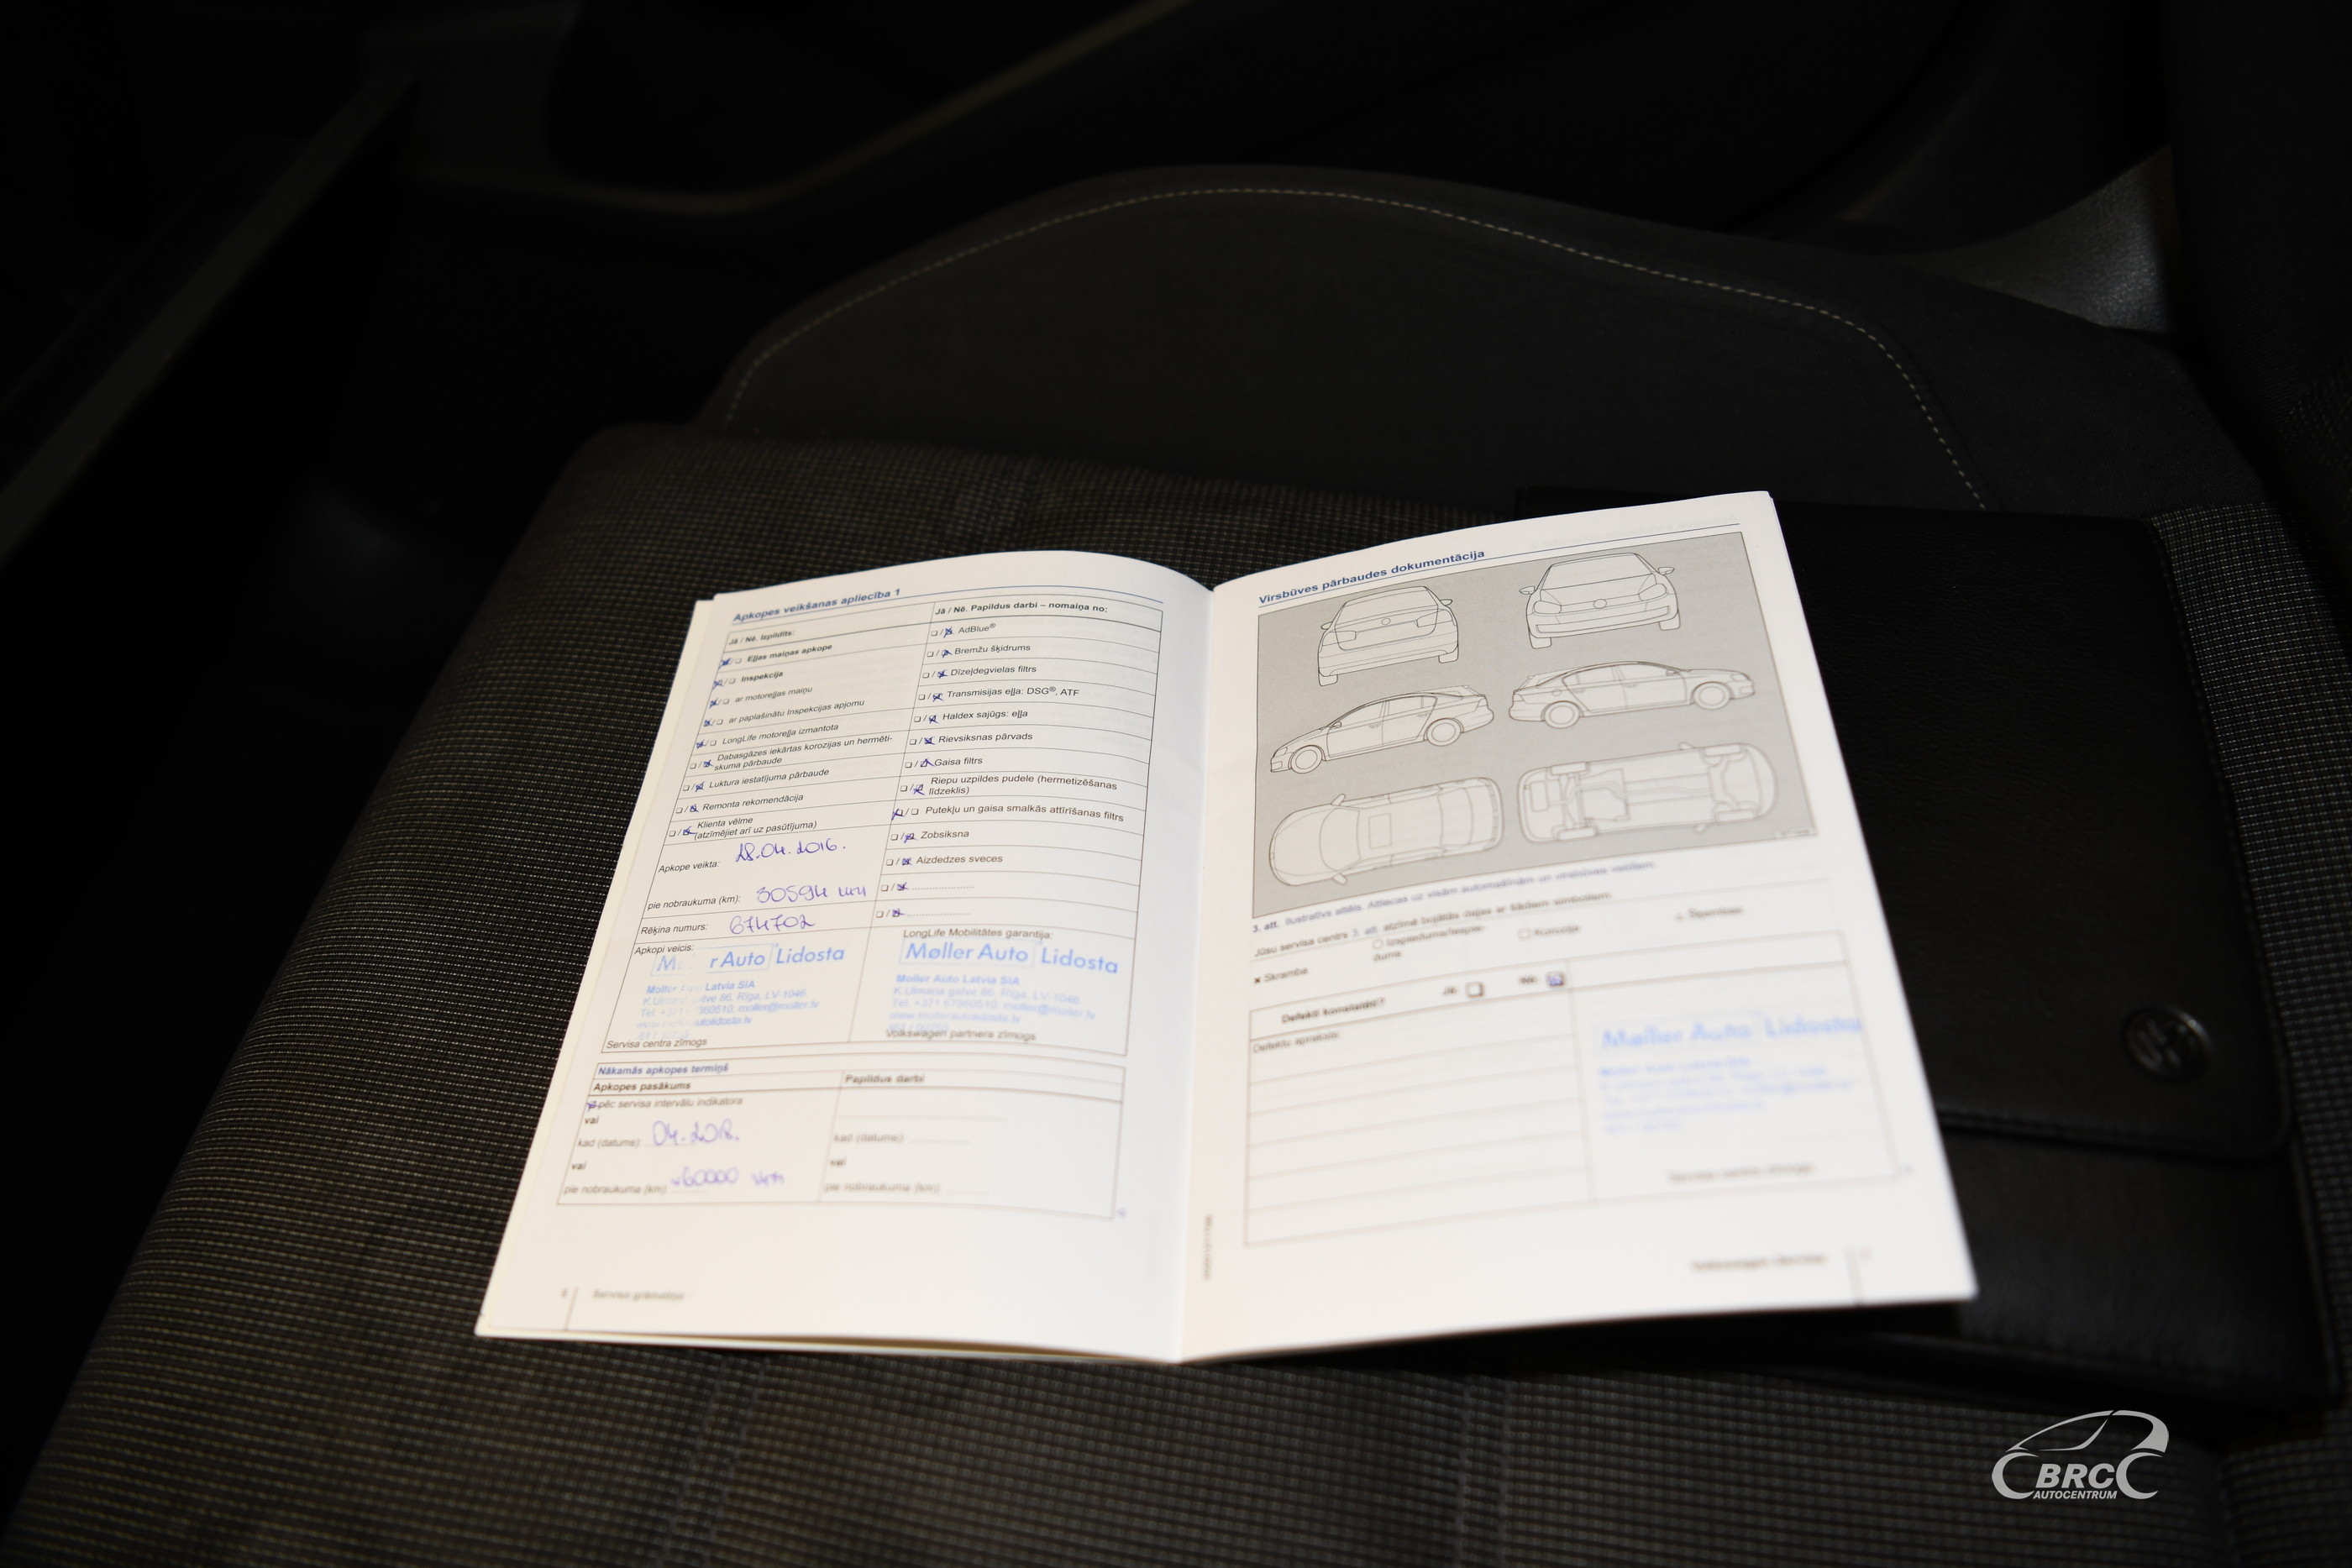 Apkopes veikšanas apliecība 1
Jā / Nē. Izpildīts:
Eļļas maiņas apkope
Inspekcija
ar motoreļļas maiņu
ar paplašinātu Inspekcijas apjomu
LongLife motoreļļa izmantota
Dabasgāzes iekārtas korozijas un hermēti-
skuma pārbaude
Luktura iestatījuma pārbaude
Remonta rekomendācija
Klienta vēlme
(atzīmējiet arī uz pasūtījuma)
Apkope veikta: 28.04.2016.
pie nobraukuma (km): 30594 km
Rēķina numurs: 674702
Apkopi veicis:
Auto Lidosta
Moller Latvia SIA
86, Rīga, LV-1046
moller@moller.lv
Servisa centra zīmogs
Jā / Nē. Papildus darbi – nomaiņa no:
AdBlue®
Bremžu šķidrums
Dīzeļdegvielas filtrs
Transmisijas eļļa: DSG®, ATF
Haldex sajūgs: eļļa
Rievsiksnas pārvads
Gaisa filtrs
Riepu uzpildes pudele (hermetizēšanas
līdzeklis)
Putekļu un gaisa smalkās attīrīšanas filtrs
Zobsiksna
Aizdedzes sveces
LongLife Mobilitātes garantija:
Møller Auto Lidosta
Moller Auto Latvia SIA
K.Ulmaņa gatve 86, Rīga, LV-1046
Tel. +371 67860510, moller@moller.lv
www.mollerautolidosta.lv
Volkswagen partnera zīmogs
Nākamās apkopes termiņš
Apkopes pasākums
pēc servisa intervālu indikatora
vai
kad (datums): 04.2018.
vai
pie nobraukuma (km) 60000 km
Papildus darbi
kad (datums)
vai
pie nobraukuma (km)
Servisa grāmatiņa
Virsbūves pārbaudes dokumentācija
3. att. Ilustratīvs attēls. Attiecas uz visām automašīnām un virsbūves veidiem.
Jūsu servisa centrs 3. att. atzīmē bojātās daļas ar šādiem simboliem:
× Skramba
Korozija
Defekti konstatēti? Jā: Nē:
Defektu apraksts:
Møller Auto Lidosta
BRC
AUTOCENTRUM